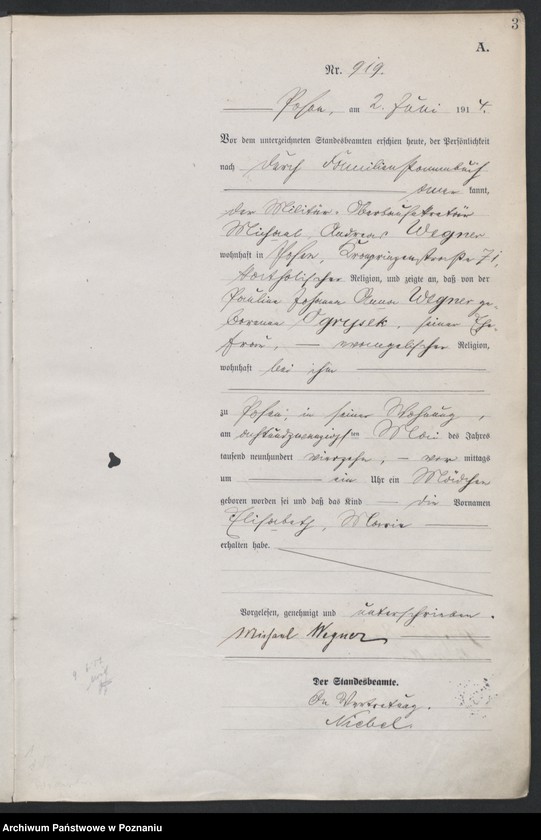 3
A.
Nr. 919.
Posen, am 2. Juni 1914.
Vor dem unterzeichneten Standesbeamten erschien heute, der Persönlichkeit
nach durch Familienstammbuch
kannt,
der Militär-
Michael Andreas Wegner
wohnhaft in Posen, Kronprinzenstraße 71,
katholischer Religion, und zeigte an, daß von der
Pauline Johanna Anna Wegner ge-
borenen Ogrysek, seiner Ehe-
frau, evangelischer Religion,
wohnhaft bei ihm
zu Posen, in seiner Wohnung,
am achtundzwanzigsten Mai des Jahres
tausend neunhundert vierzehn, vor mittags
um ein Uhr ein Mädchen
geboren worden sei und daß das Kind die Vornamen
Elisabeth, Maria
erhalten habe.
Vorgelesen, genehmigt und unterschrieben.
Michael Wegner
Der Standesbeamte.
In Vertretung.
Niebel
Archiwum Państwowe w Poznaniu